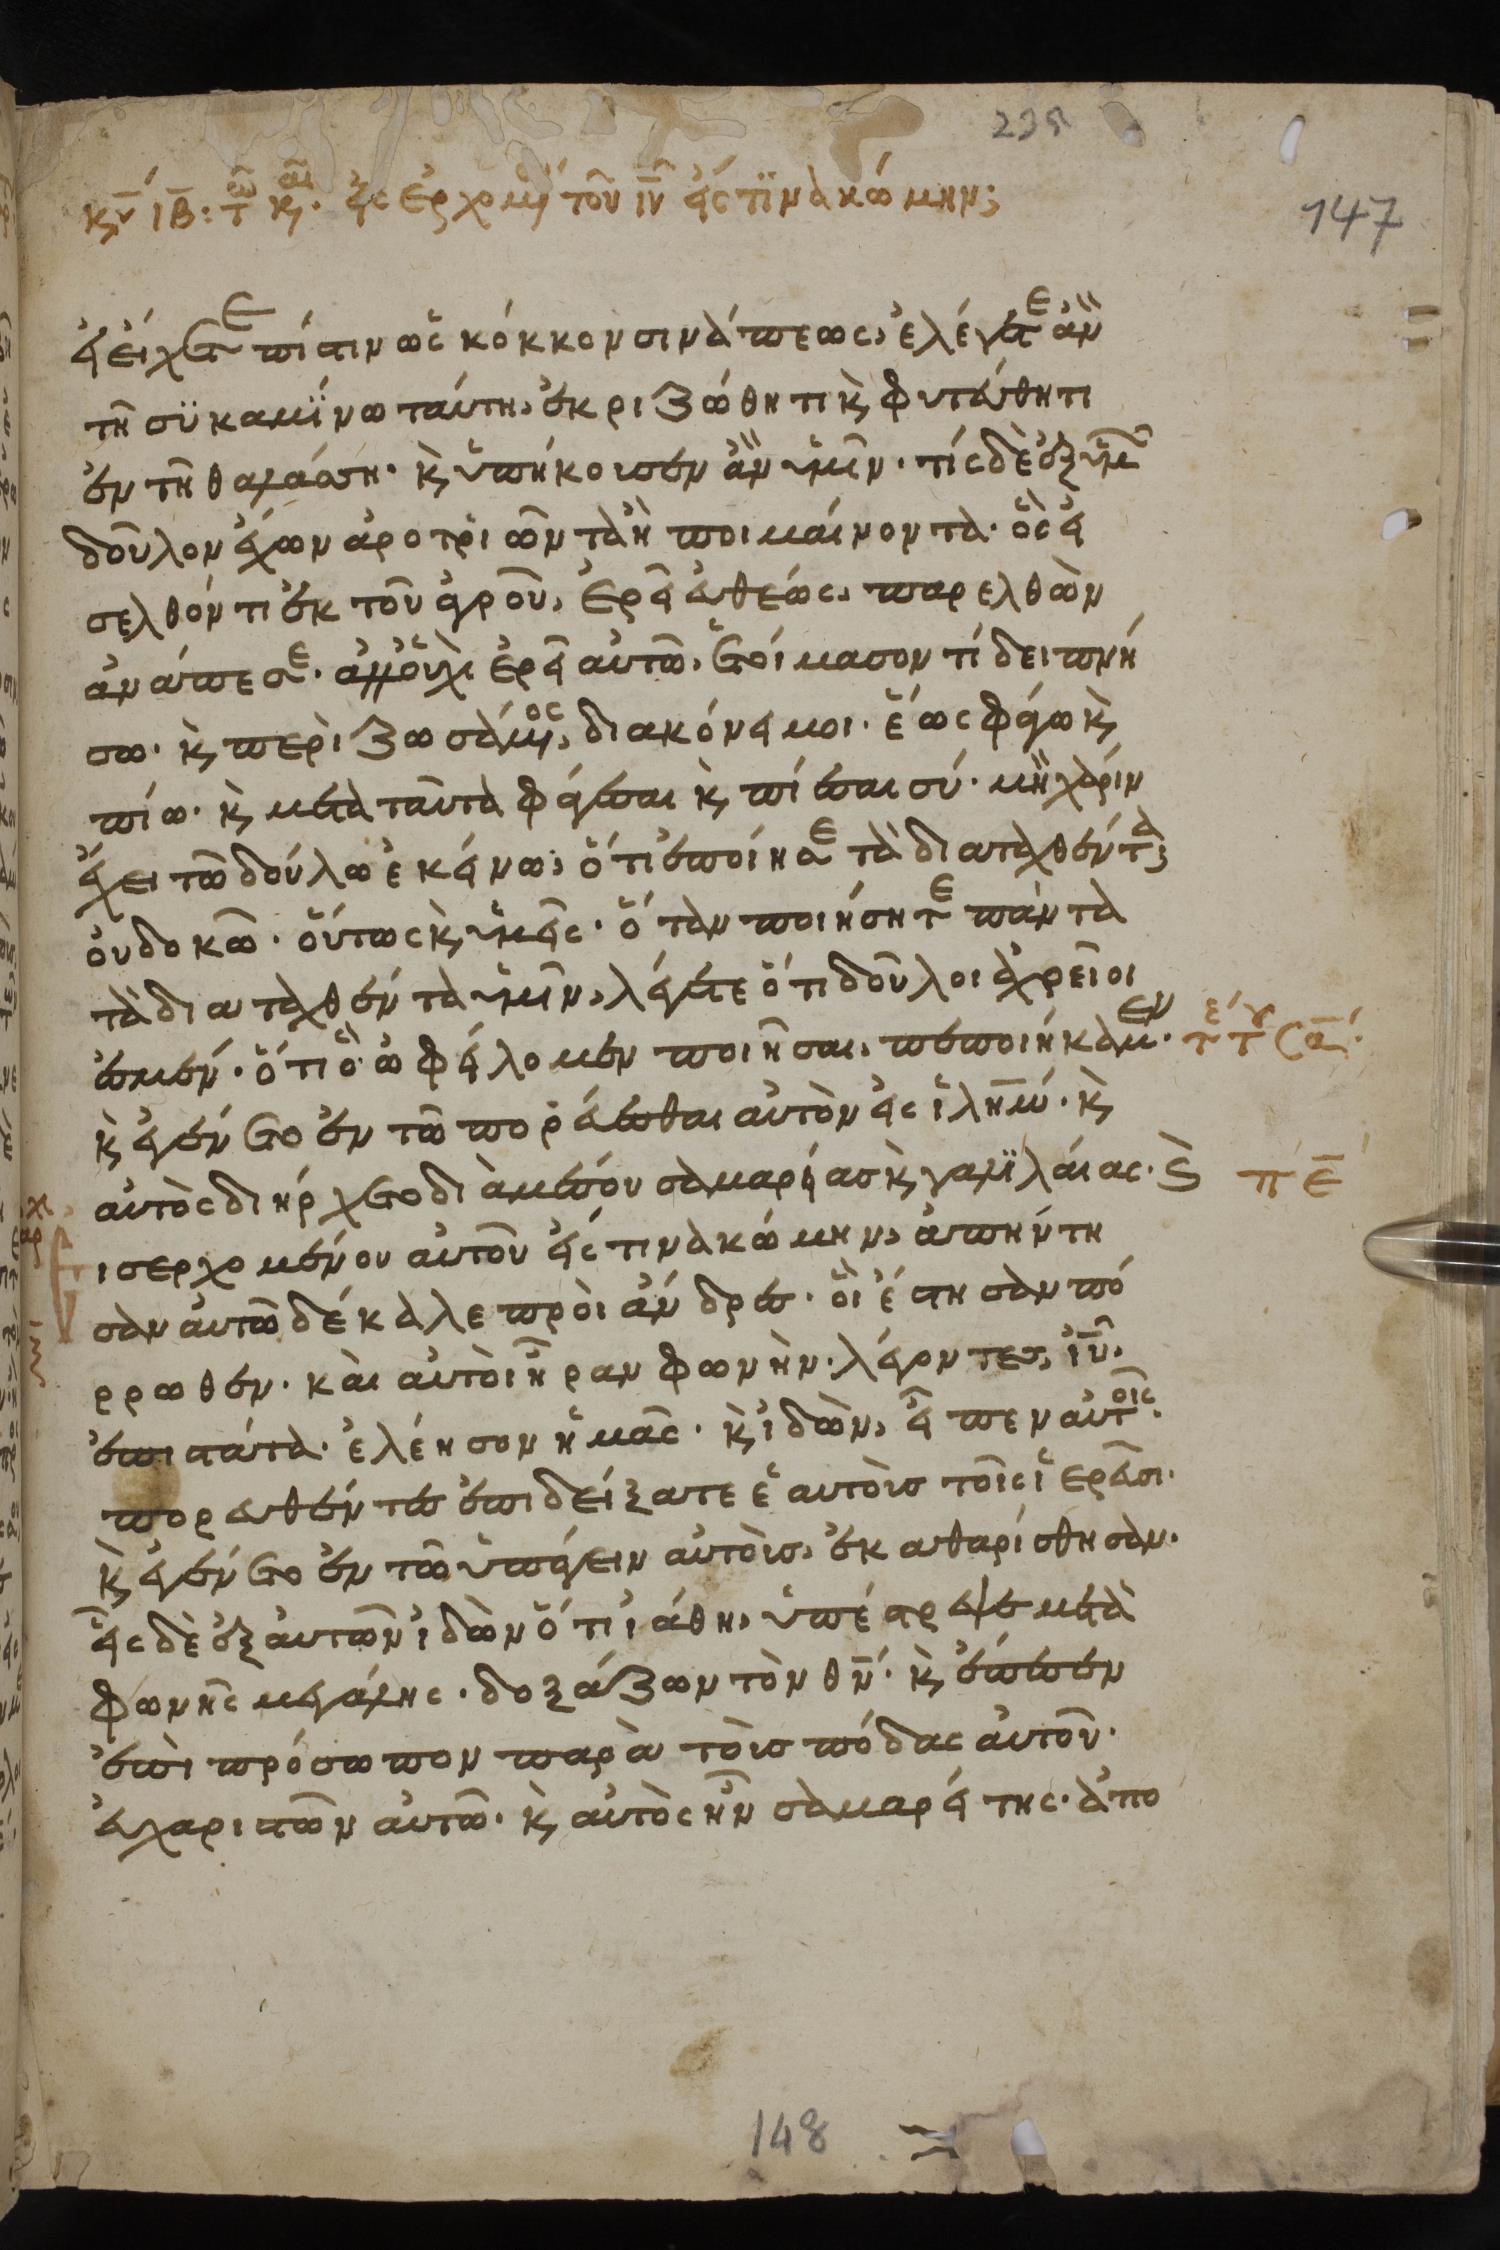 235
147
κυ ιβ: τω κω. εἰσερχομέ τοῦ ιυ εἴς τινὰ κώμην;
εἰ εἴχετε πίστιν ὡς κόκκον σινάπεως, ἐλέγετε ἂν
τῆ συκαμίνω ταύτη, ἐκριζώθητι κ φυτεύθητι
ἐν τῆ θαλάσση. κ ὑπήκουσεν ἂν ὑμῖν. τίς δὲ ἐξ ὑμ
δοῦλον ἔχων ἀροτριῶντα ἢ ποιμαίνοντα. ὃς εἰ
σελθόντι ἐκ τοῦ ἀγροῦ, ἐρεῖ εὐθέως, παρελθὼν
ἀνάπεσε. ἀλλ οὐχὶ ἐρεῖ αὐτῶ, ἑτοίμασον τί δειπνή
σω. κ περιζωσάμενος, διακόνει μοι. ἕως φάγω κ
πίω. κ μετὰ ταῦτα φάγεσαι κ πίεσαι σύ. μὴ χάριν
ἔχει τῶ δούλω ἐκείνω, ὅτι ἐποίησε τὰ διαταχθέντα;
οὐ δοκῶ. οὕτως κ ὑμεῖς. ὅταν ποιήσητε πάντα
τὰ διαταχθέντα ὑμῖν, λέγετε ὅτι δοῦλοι ἀχρεῖοι
ἐσμέν. ὅτι ὃ ὠφείλομεν ποιῆσαι, πεποιήκαμεν.
κ ἐγένετο ἐν τῶ πορεύεσθαι αὐτὸν εἰς ἱλημ. κ
αὐτὸς διήρχετο διὰ μέσου σαμαρείας κ γαλιλαίας.
ισερχομένου αὐτοῦ εἴς τινὰ κώμην, ἀπήντη
σαν αὐτῶ δέκα λεπροὶ ἄνδρες. οἳ ἔστησαν πό
ρρωθεν. καὶ αὐτοὶ ἦραν φωνὴν. λέγοντες, ἰυ,
ἐπιστάτα. ἐλέησον ἡμᾶς. κ ἰδὼν, εἶπεν αὐτοῖς.
πορευθέντες ἐπιδείξατε ἑαυτοὺς τοῖς ἱερεῦσι.
κ ἐγένετο ἐν τῶ ὑπάγειν αὐτοὺς, ἐκαθαρίσθησαν.
εἷς δὲ ἐξ αὐτῶν ἰδὼν ὅτι ἰάθη, ὑπέστρεψε μετὰ
φωνῆς μεγάλης. δοξάζων τὸν θν. κ ἔπεσεν
ἐπὶ πρόσωπον παρὰ τοὺς πόδας αὐτοῦ.
εὐχαριστῶν αὐτῶ. κ αὐτὸς ἦν σαμαρείτης. ἀπο
πε
148